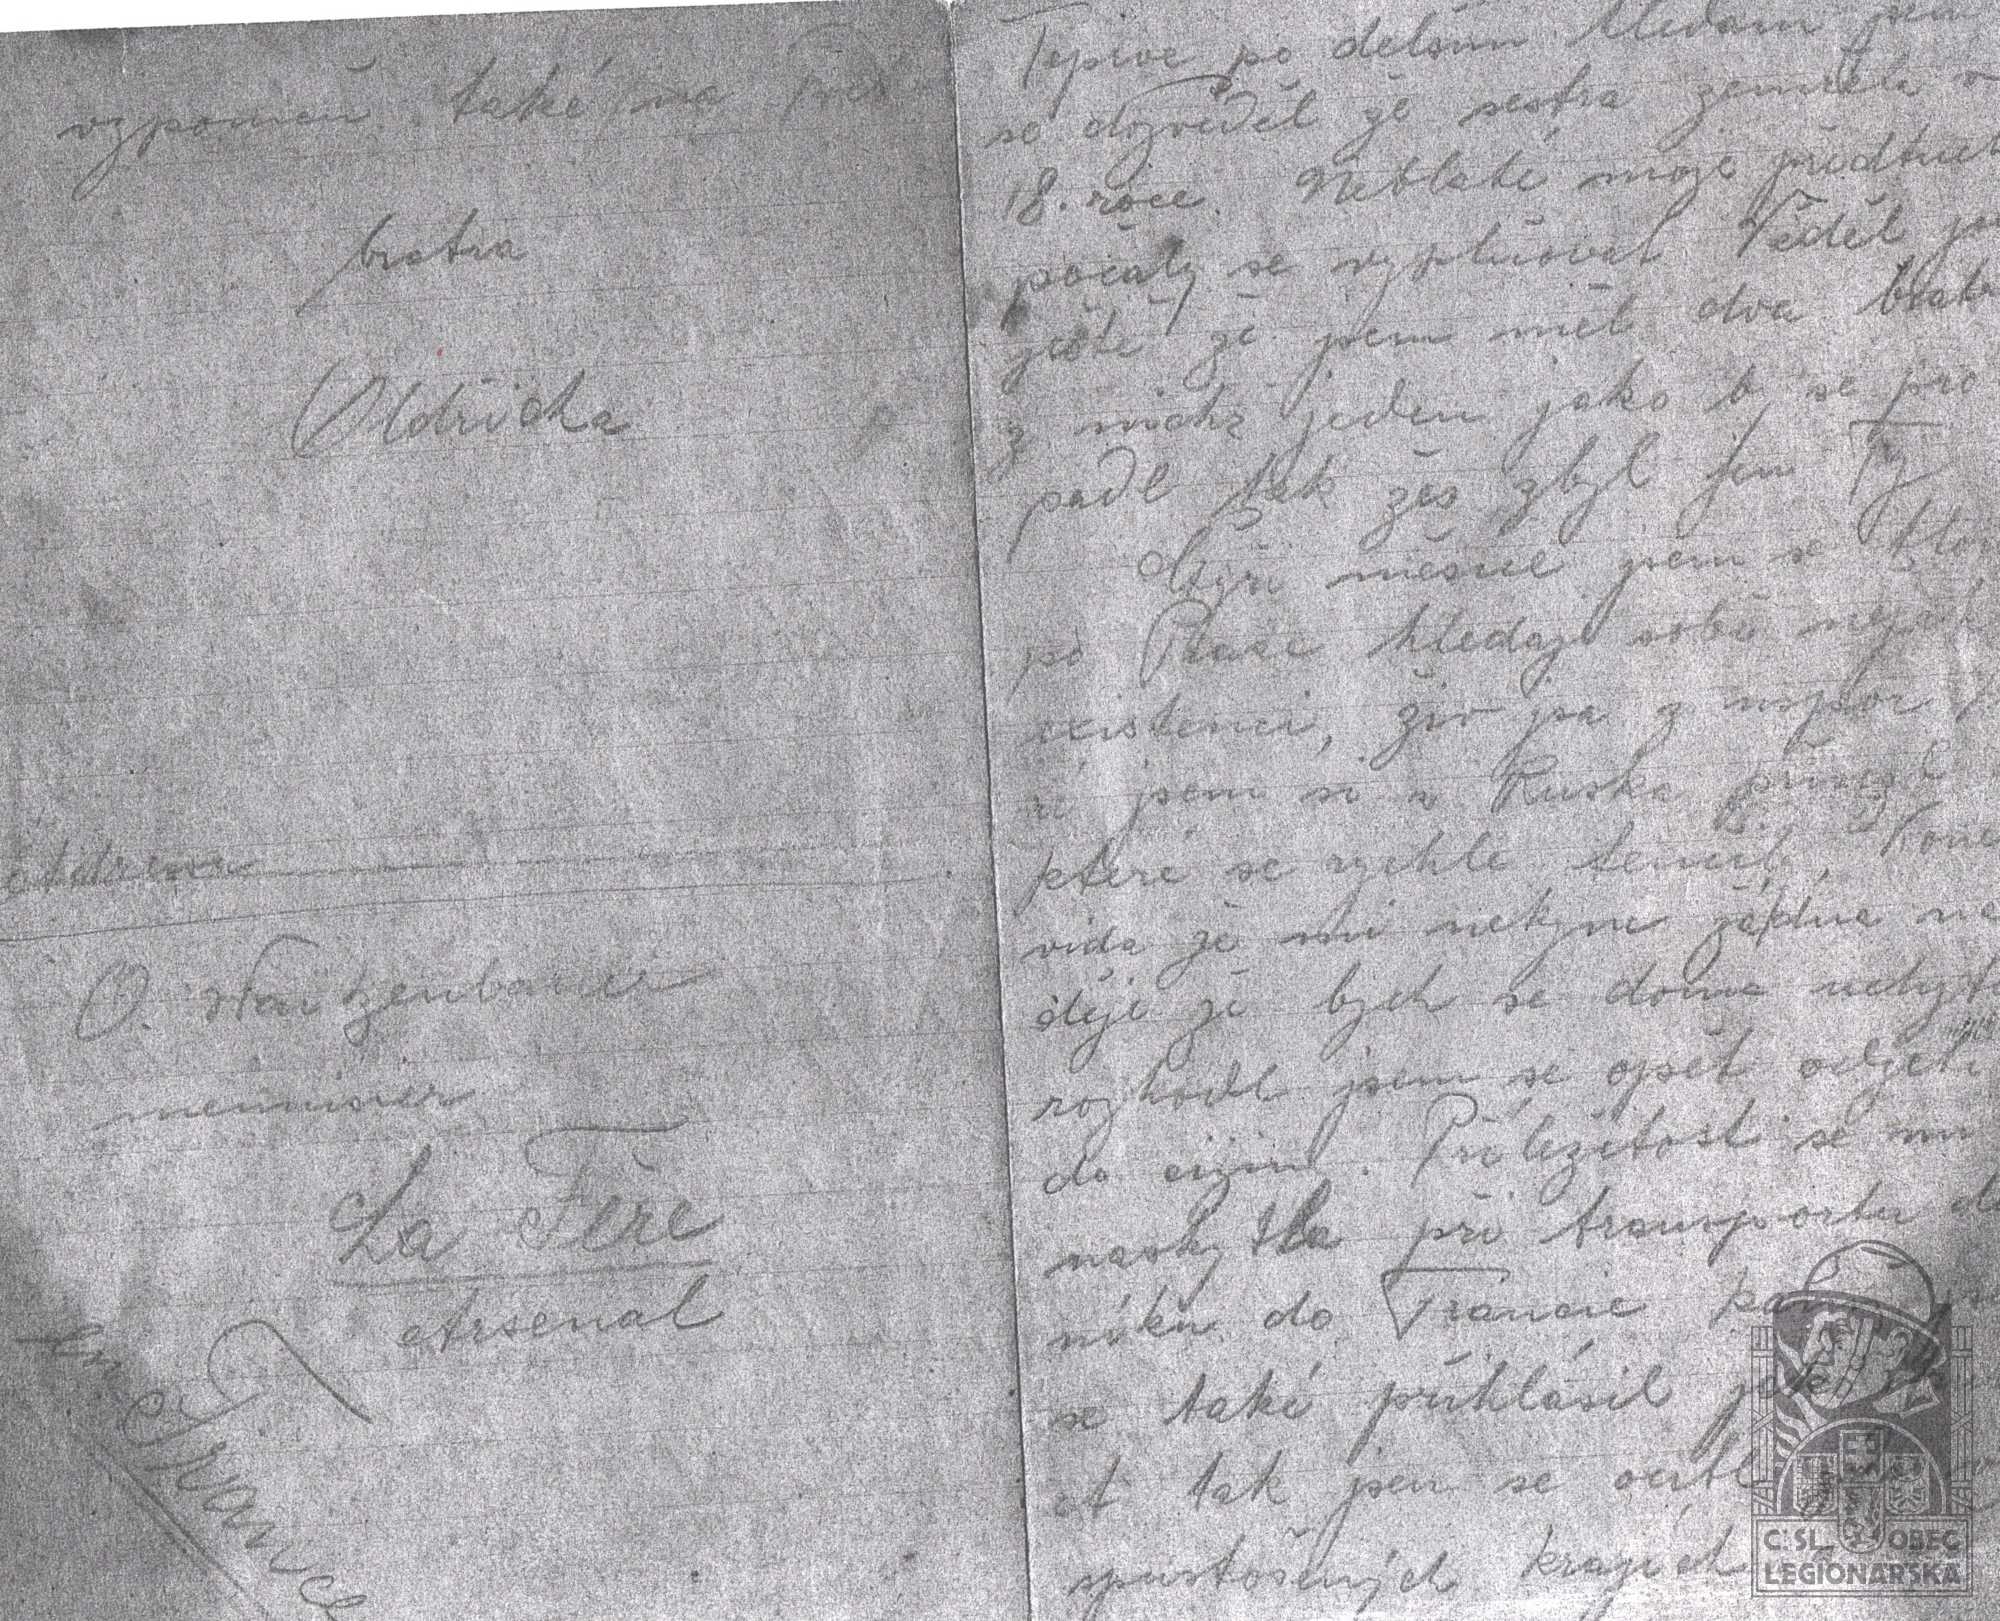 vzpomeň také na
bratra
Oldřicha
Adresa
O. Stanzenbauer
menuisier
La Fère
Arsenal
en France
Teprve po delším hledání jsem
se dozvěděl že sestra zemřela v
18. roce. Neblahé moje předtuch
počaly se vyplňovat Věděl jse
ješte že jsem měl dva bratr
z nichž jeden jako b se pro
padl tak žes zbyl jen Ty
Čtyři měsíce jsem se
po Praze hledaje sobě nějak
existenci, živ jsa z uspor
é jsem si z Ruska přivezl
které se rychle tenčily. Kone
vida že mi nekyne žádna na
děje že bych se doma uchyti
rozhodl jsem se opět odjeti
do ciziny. Příležitost se mi
naskytla při transportu dě
níku do Francie kam
se také přihlásil
A tak jsem se ocitl
spustošených krajich
Č SL. OBEC
LEGIONÁŘSKÁ